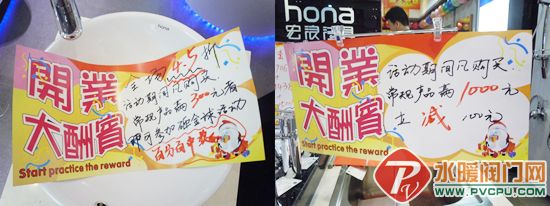 hona
開業
大酬賓
Start practice the reward
全场4.5折
活动期间凡购买
常规产品满300元者
即可参加砸金蛋活动
百分百中奖
hona
宏浪洁具
開業
大酬賓
Start practice the reward
活动期间凡购买
常规产品满1000元
立减100元
水暖阀门网
www.PVCPU.com